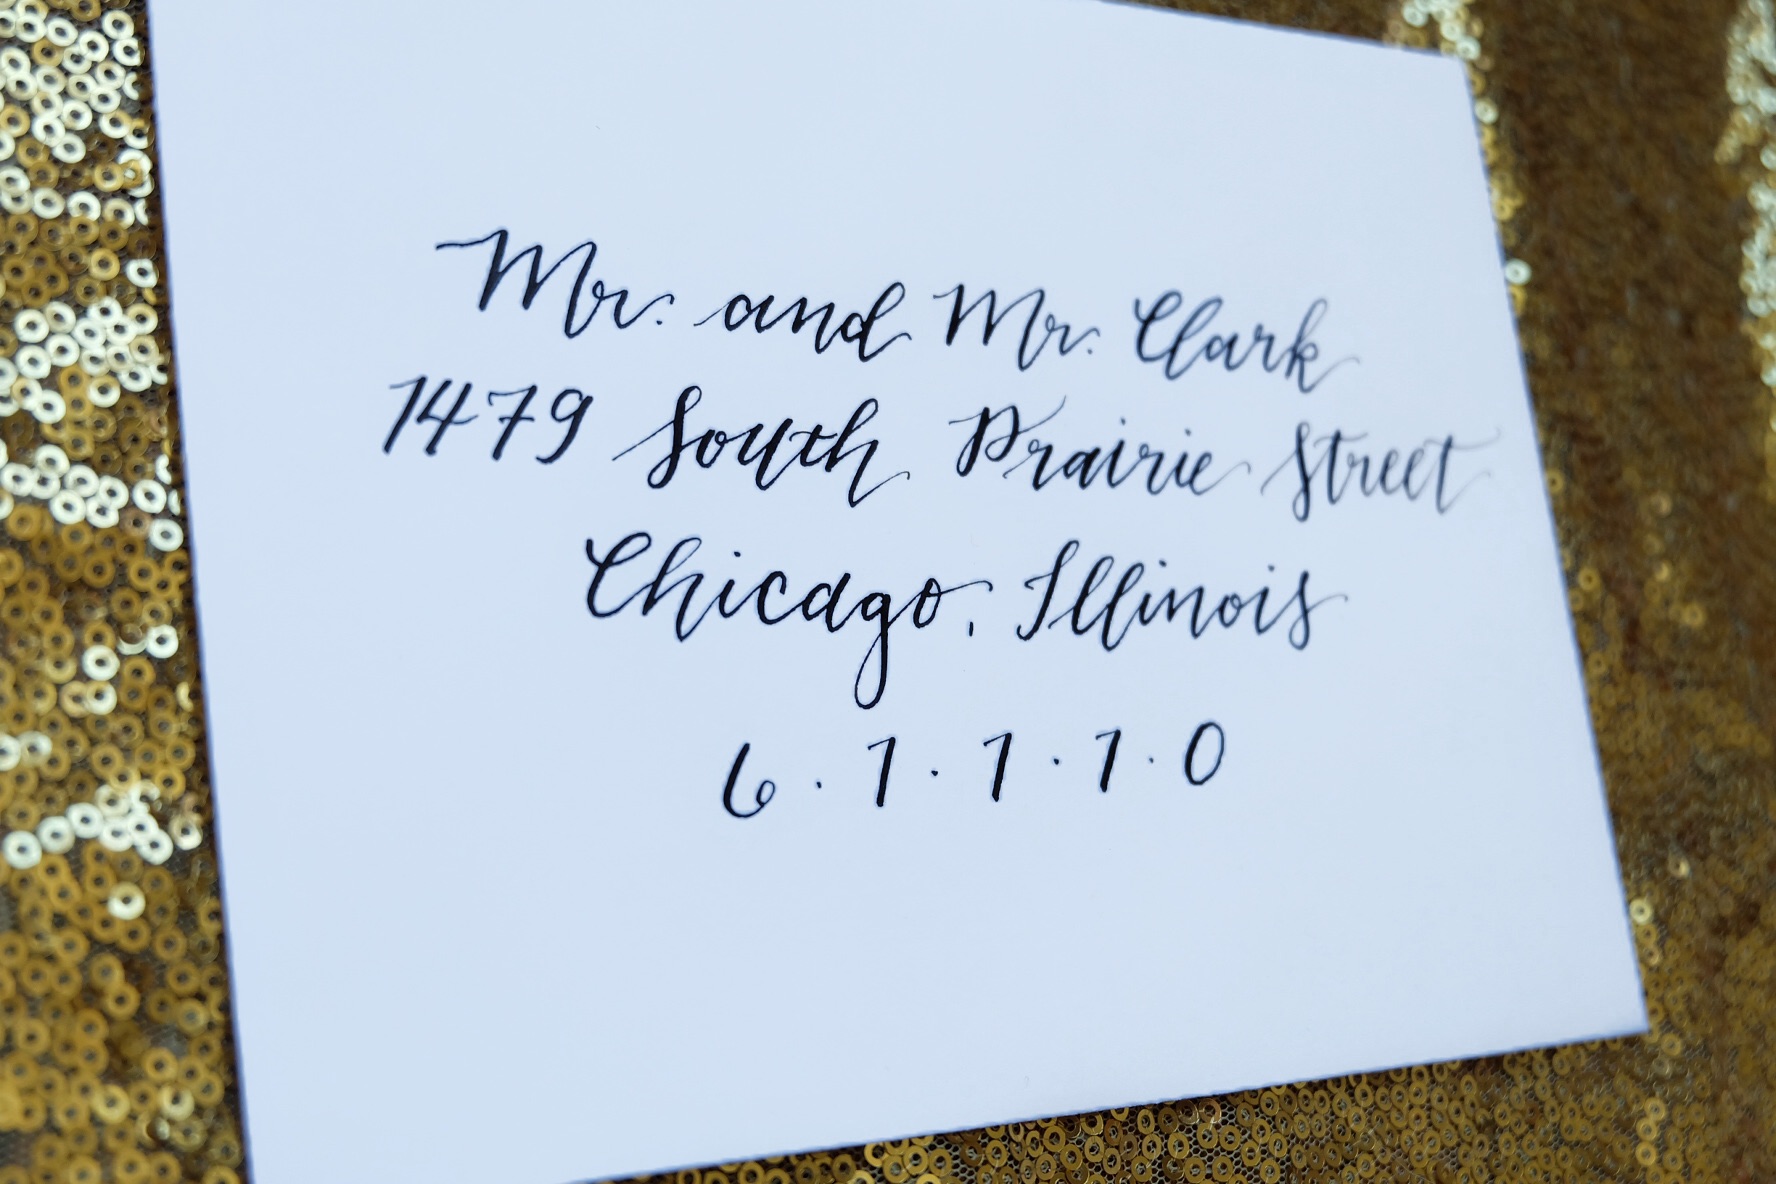 Mr. and Mr. Clark
1479 South Prairie Street
Chicago, Illinois
6 · 1 · 1 · 1 · 0